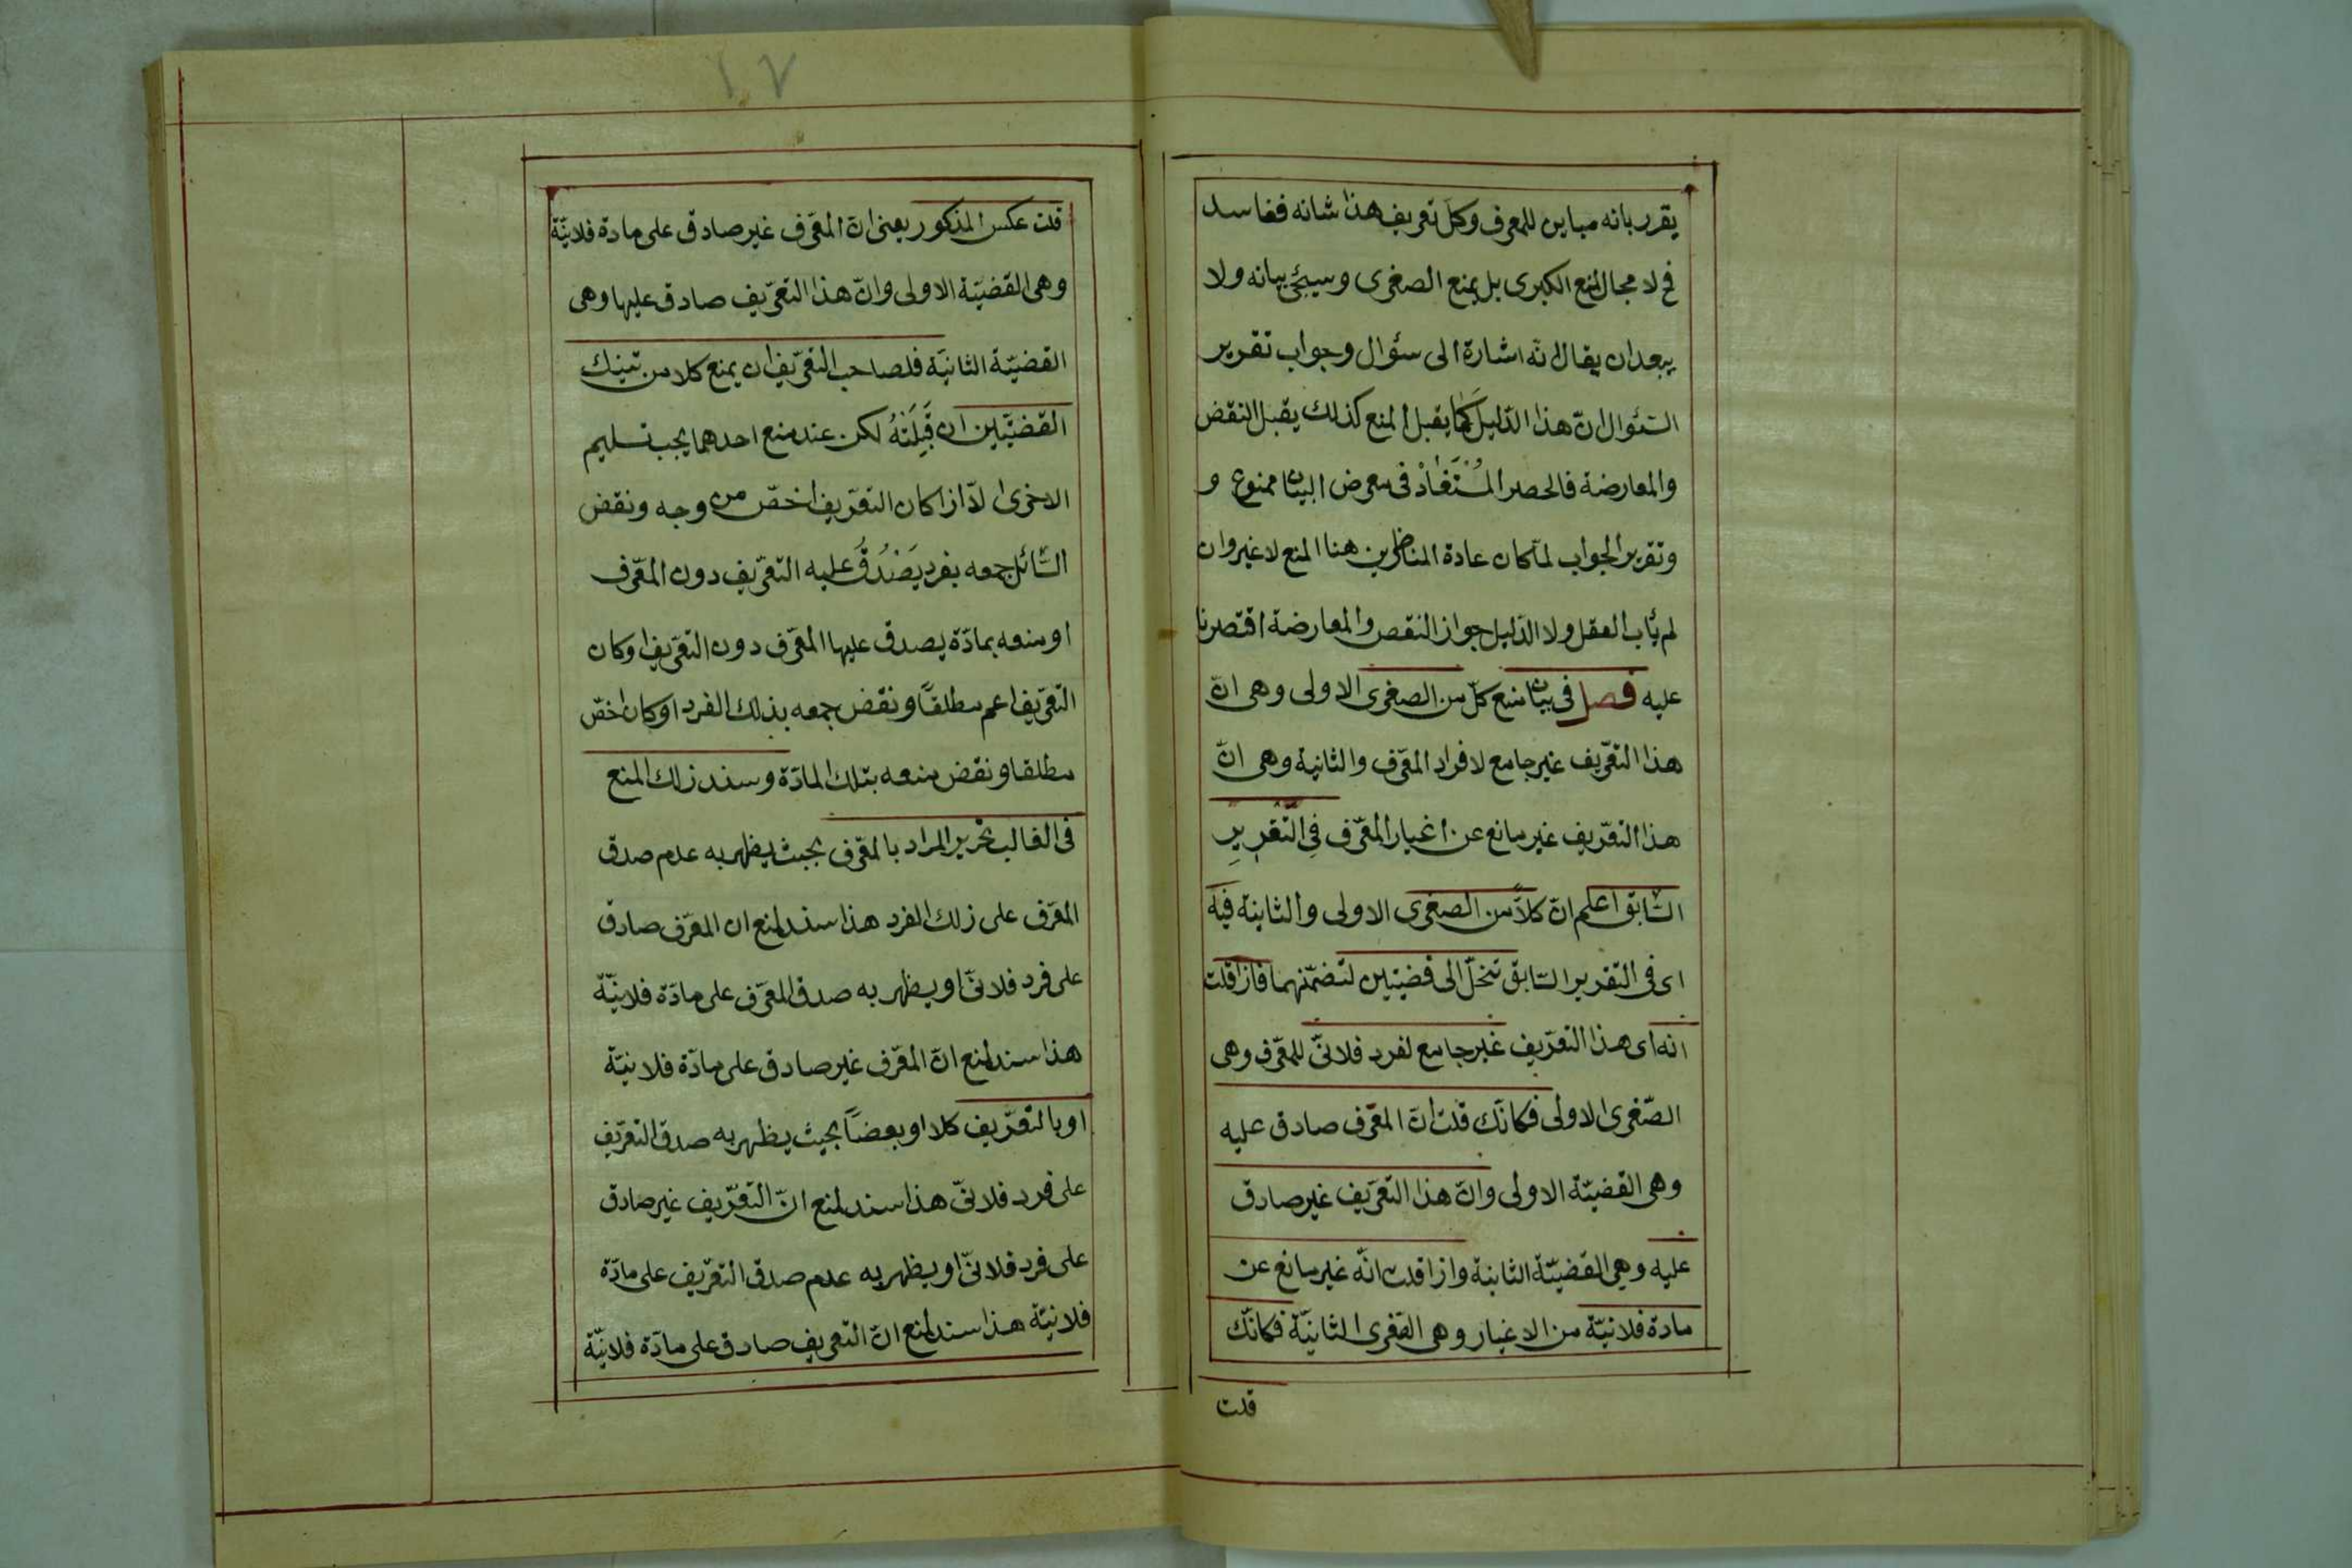 يقرر بانه مباين للمعرف وكل تعريف هذا شانه ففاسد
فح لا مجال لمنع الكبرى بل يمنع الصغرى وسيجئ بيانه ولا
يبعد ان يقال انه اشارة الى سئوال وجواب تقرير
السّئوال انّ هذا الدّليل كَمَا يقبل المنع كذلك يقبل النقض
والمعارضة فالحصر المُسْتَفَادْ فى معرض البيان ممنوع و
وتقرير الجواب لمّا كان عادة المناظرين هنا المنع لا غير وان
لم يأب العقل ولا الدّليل جواز النقض والمعارضة اقتصرنا
عليه فصل فى بيان منع كلّ من الصغرى الاولى وهى انّ
هذا التعّريف غير جامع لافراد المعّرف والثانية وهى انّ
هذا التعّريف غير مانع عن اغيار المعّرف فِى التَّقْرِيرِ
السّابق اعلم انّ كلاًّ من الصغرى الاولى والثانية فيه
اى فى التقرير السّابق تنحلّ الى قضيتين لتضمّنهما فاذا قلت
انه اى هذا التعّريف غير جامع لفرد فلانىّ للمعّرف وهى
الصّغرى الاولى فكانّك قلت انّ المعّرف صادق عليه
وهى القضيّة الاولى وانّ هذا التعّريف غير صادق
عليه وهى القضيّة الثانية واذا قلت انّه غير مانع عن
مادة فلانيّة من الاغيار وهى الصّغرى الثانيّة فكانّك
قلت
١٧
قلت عكس المذكور يعنى انّ المعّرف غير صادق على مادة فلانيّة
وهى القضيّة الاولى وانّ هذا التعّريف صادق عليها وهى
القضيّة الثانيّة فلصاحب التعّريف ان يمنع كلا من تينك
القضيّتين ان قَبِلَتْهُ لكن عند منع احدهما يجب تسليم
الاخرى الّا اذا كان التعّريف اخصّ من وجه ونقض
السّائل جمعه بفرد يَصْدُقُ عليه التعّريف دون المعّرف
او منعه بمادّة يصدق عليها المعّرف دون التعّريف او كان
التعّريف اعم مطلقاً ونقض جمعه بذلك الفرد او كان اخصّ
مطلقا ونقض منعه بتلك المادّة وسند ذلك المنع
فى الغالب تحرير المراد بالمعّرف بحيث يظهر به عدم صدق
المعّرف على ذلك الفرد هذا سند لمنع ان المعّرف صادق
على فرد فلانىّ او يظهر به صدق المعّرف على مادّة فلانيّة
هذا سند لمنع انّ المعّرف غير صادق على مادّة فلانيّة
او بالتعّريف كلا او بعضاً بحيث يظهر به صدق التعّريف
على فرد فلانىّ هذا سند لمنع انّ التعّريف غير صادق
على فرد فلانىّ او يظهر به عدم صدق التعّريف على مادّة
فلانيّة هذا سند لمنع انّ التعريف صادق على مادّة فلانيّة